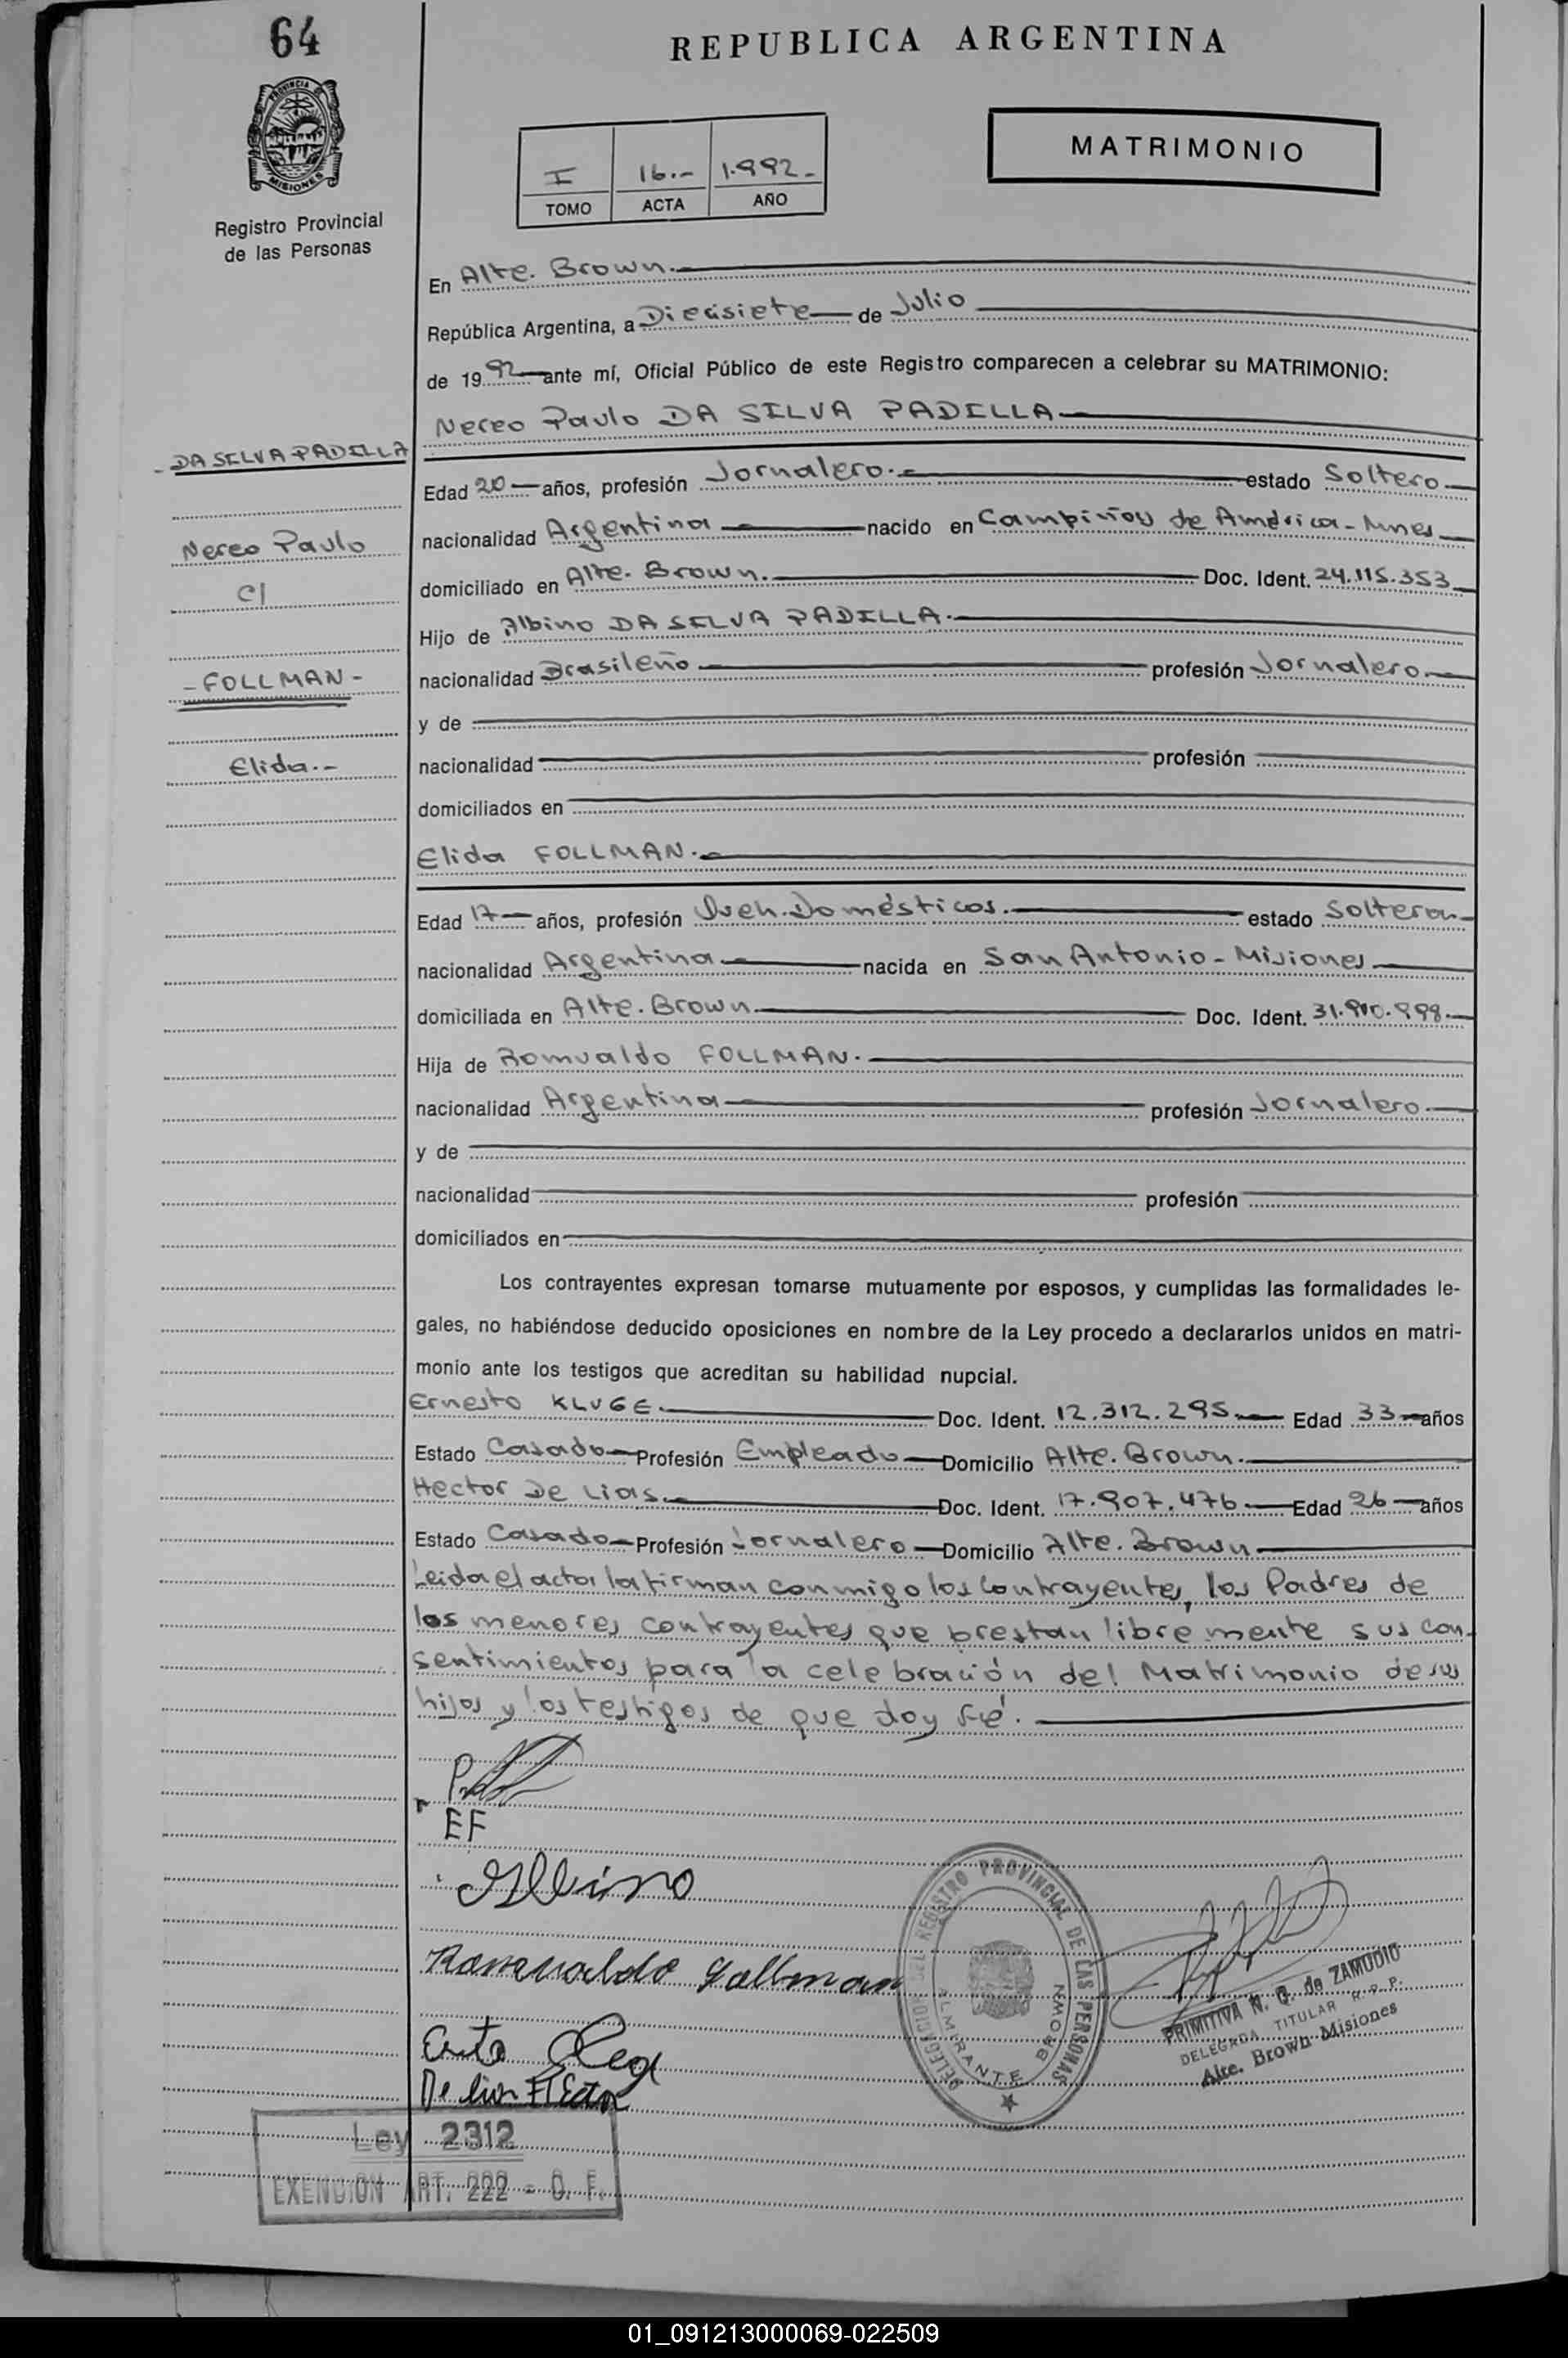 64
REPUBLICA ARGENTINA
PROVINCIA DE
MISIONES
MATRIMONIO
I 16.- 1.992_
TOMO ACTA AÑO
Registro Provincial
de las Personas
En Alte. Brown.
República Argentina, a Diecisiete de Julio
de 1992 ante mí, Oficial Público de este Registro comparecen a celebrar su MATRIMONIO:
Nereo Paulo DA SILVA PADILLA
- DA SILVA PADILLA
Edad 20 años, profesión Jornalero.- estado Soltero
Nereo Paulo
nacionalidad Argentina nacido en Campiñas de América - Mnes
C/
domiciliado en Alte. Brown. Doc. Ident. 24.115.353
Hijo de Albino DA SILVA PADILLA.
- FOLLMAN -
nacionalidad Brasileño profesión Jornalero
y de
Elida.-
nacionalidad profesión
domiciliados en
Elida FOLLMAN.-
Edad 17 años, profesión Queh. Domésticos. estado Soltera
nacionalidad Argentina nacida en San Antonio - Misiones
domiciliada en Alte. Brown. Doc. Ident.
Hija de Romualdo FOLLMAN.
nacionalidad Argentina profesión Jornalero
y de
nacionalidad profesión
domiciliados en
Los contrayentes expresan tomarse mutuamente por esposos, y cumplidas las formalidades le-
gales, no habiéndose deducido oposiciones en nombre de la Ley procedo a declararlos unidos en matri-
monio ante los testigos que acreditan su habilidad nupcial.
Ernesto KLUGE. Doc. Ident. 12.312.295 Edad 33 años
Estado Casado Profesión Empleado Domicilio Alte. Brown.
Hector De Lias. Doc. Ident. 17.907.476 Edad 26 años
Estado Casado Profesión Jornalero Domicilio Alte. Brown
Leida el acta la firman conmigo los contrayentes, los Padres de
los menores contrayentes que prestan libremente sus con-
sentimientos para la celebración del Matrimonio de sus
hijos y los testigos de que doy fé.
EF
Albino
Romualdo Follman
De Lias Hector
DELEGACION DEL REGISTRO PROVINCIAL DE LAS PERSONAS
ALMIRANTE BROWN
PRIMITIVA N. Q. de ZAMUDIO
DELEGADA TITULAR R. P. P.
Alte. Brown Misiones
Ley 2312
EXENCION ART. 222 - C. F.
01_091213000069-022509